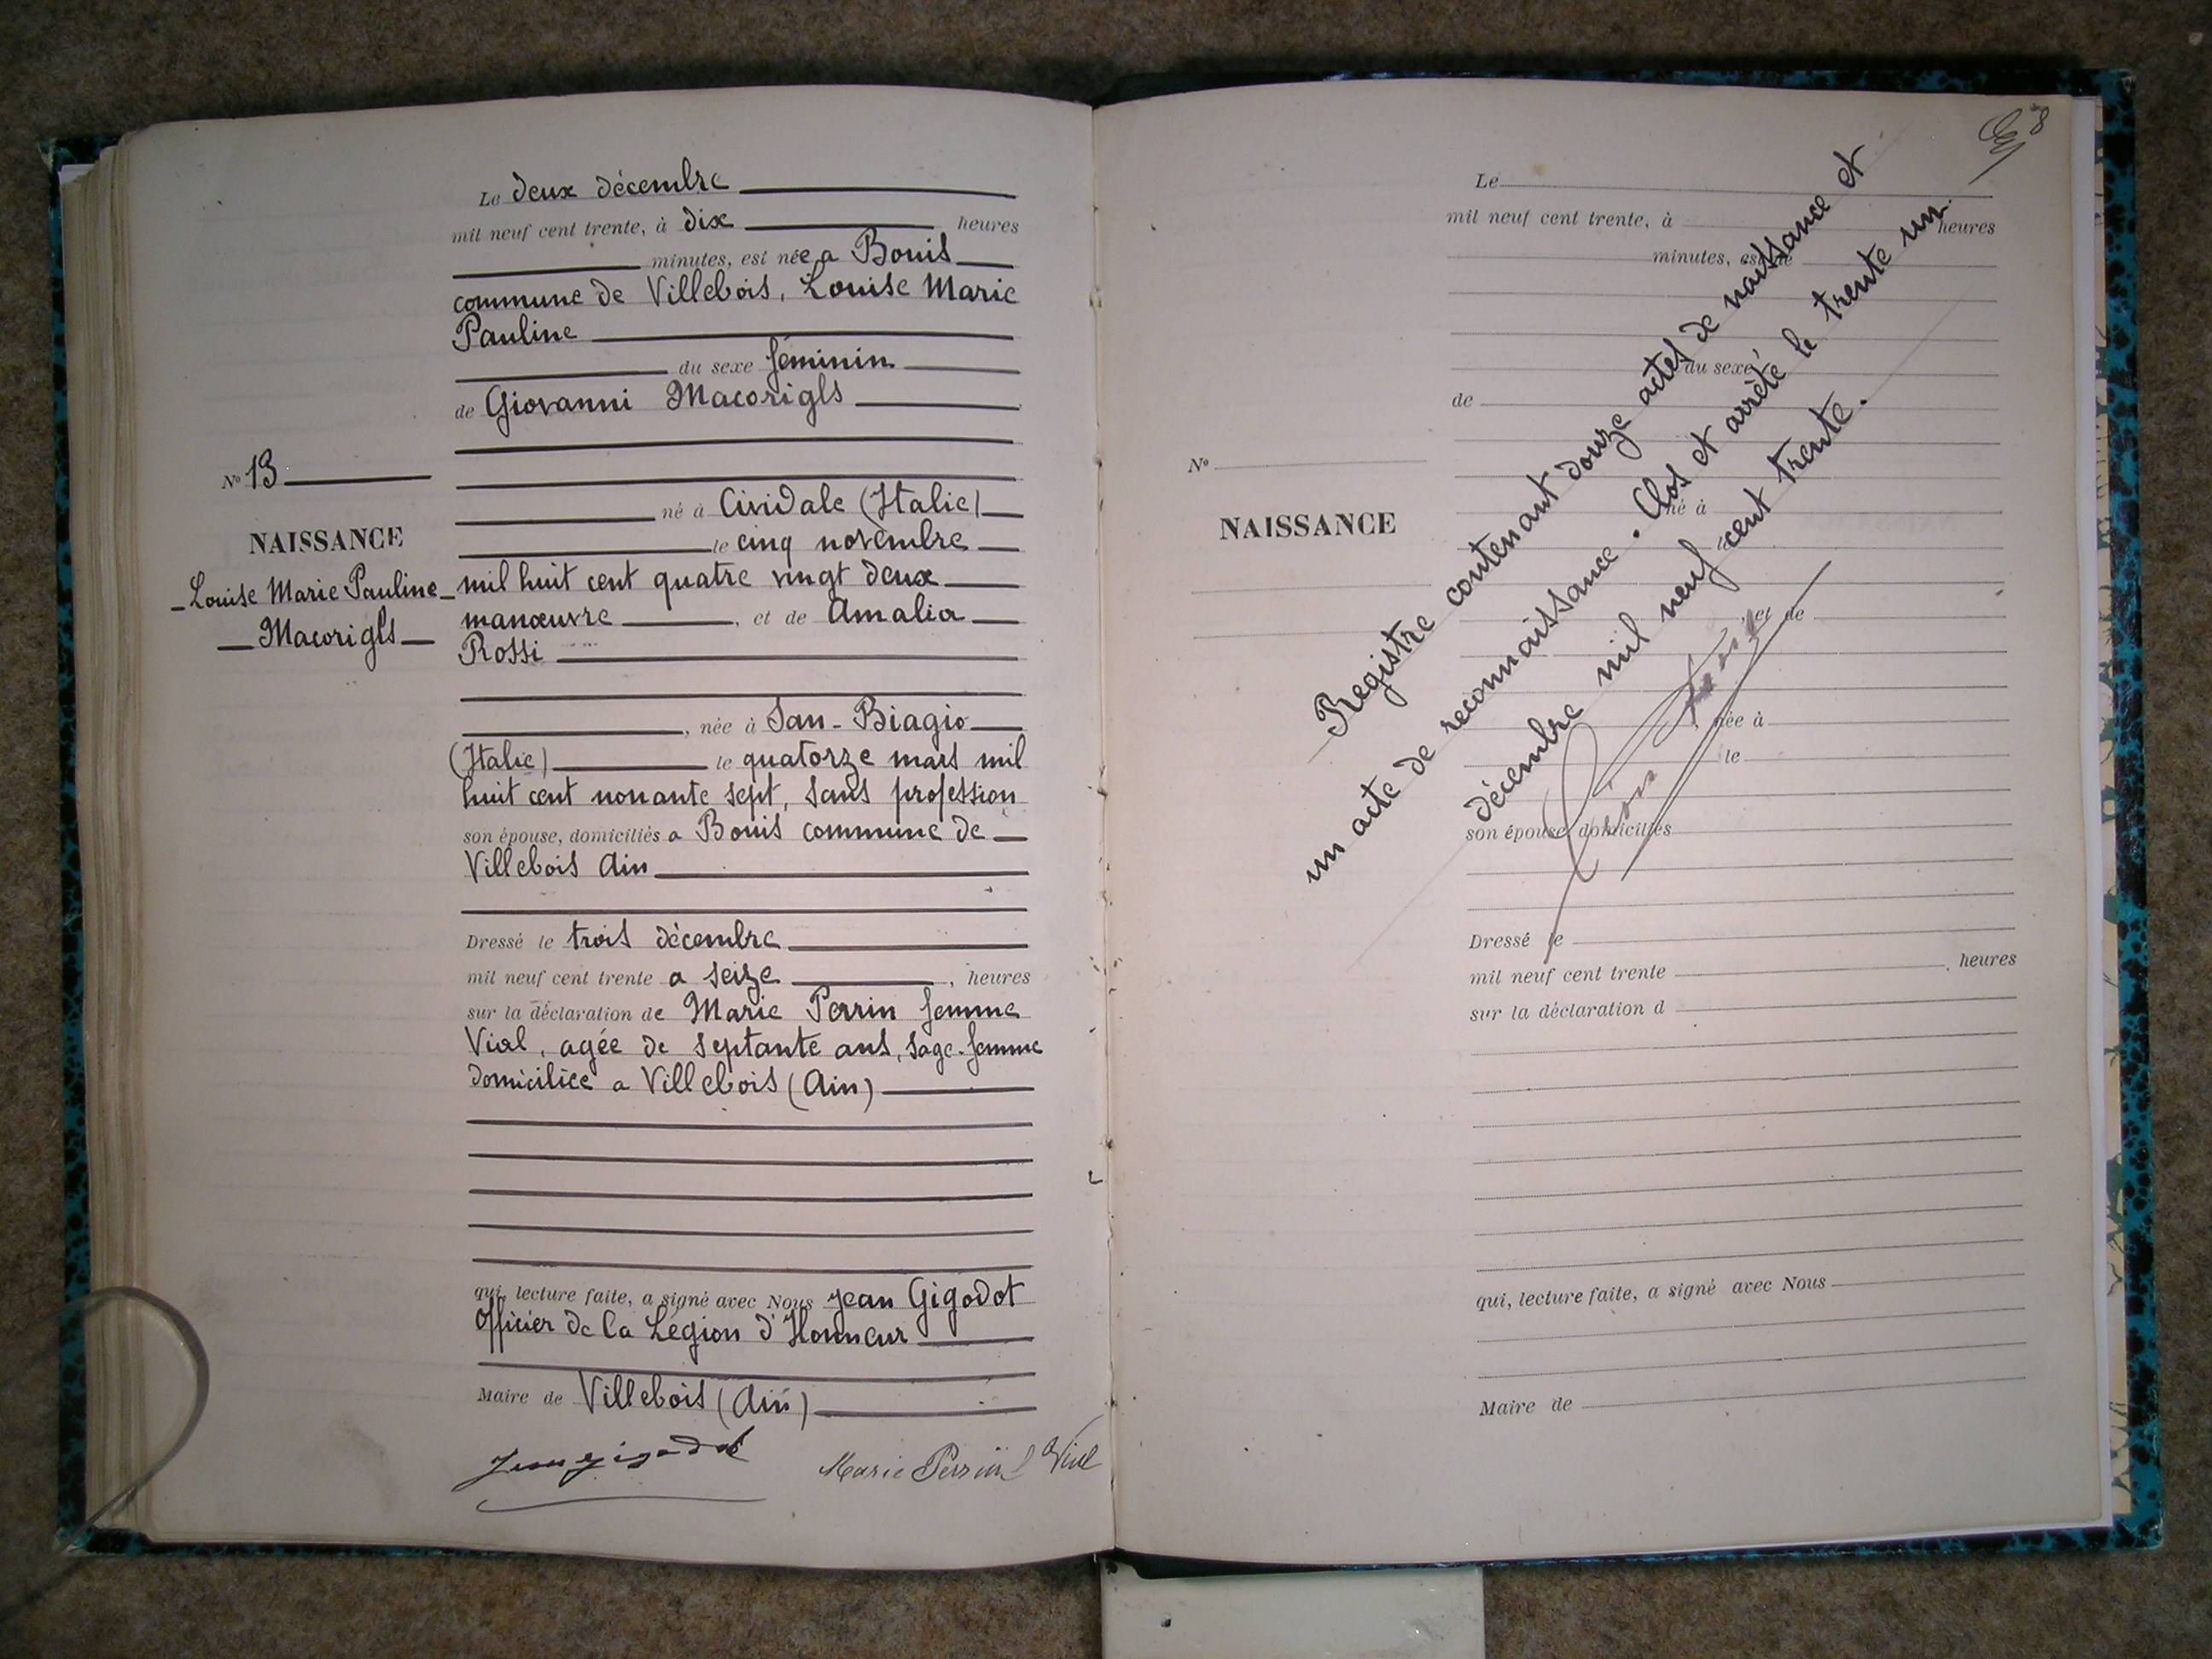 Le deux décembre
mil neuf cent trente, à dix heures
minutes, est née a Bouis
commune de Villebois, Louise Marie
Pauline
du sexe féminin
de Giovanni Macorigls
N° 13
NAISSANCE
Louise Marie Pauline
Macorigls
né à Cividale (Italie)
le cinq novembre
mil huit cent quatre vingt deux
manœuvre, et de Amalia
Rossi
, née à San-Biagio
(Italie) le quatorze mars mil
huit cent nonante sept, sans profession
son épouse, domiciliés a Bouis commune de
Villebois Ain
Dressé le trois décembre
mil neuf cent trente a seize, heures
sur la déclaration de Marie Perrin femme
Vial, agée de septante ans, sage-femme
domiciliée a Villebois (Ain)
qui, lecture faite, a signé avec Nous Jean Gigodot
Officier de la Légion d'Honneur
Maire de Villebois (Ain)
Jean Gigodot Marie Perrin Vial
Le
mil neuf cent trente, à heures
minutes, est né
du sexe
de
N°
NAISSANCE
né à
, et de
, née à
le
son épouse, domiciliés
Dressé le
mil neuf cent trente, heures
sur la déclaration d
qui, lecture faite, a signé avec Nous
Maire de
Registre contenant douze actes de naissance et
un acte de reconnaissance. Clos et arrêté le trente un
décembre mil neuf cent trente.